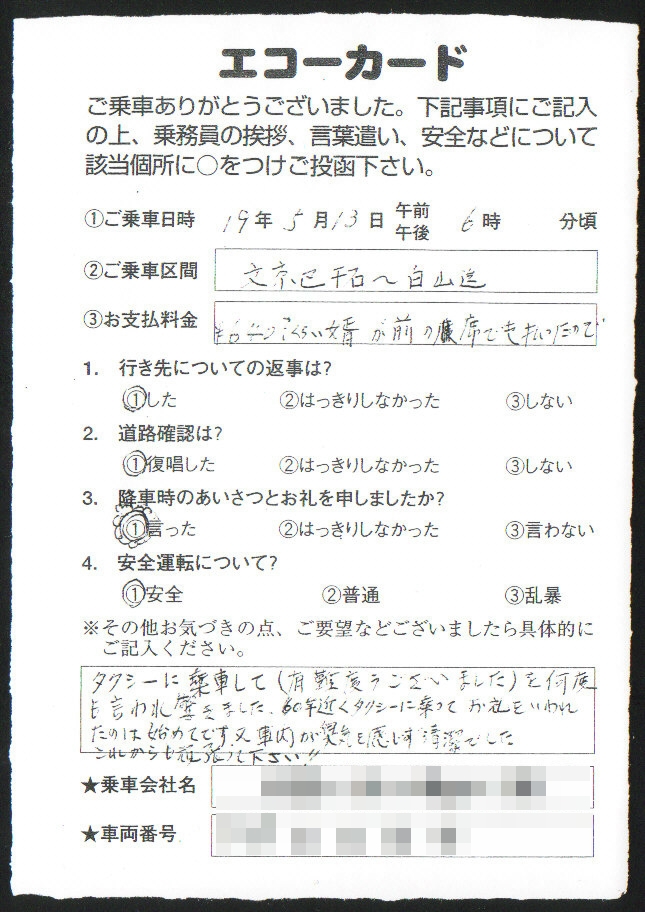 エコーカード
ご乗車ありがとうございました。下記事項にご記入
の上、乗務員の挨拶、言葉遣い、安全などについて
該当個所に○をつけご投函下さい。
①ご乗車日時 19年5月13日 午前 午後 6時 分頃
②ご乗車区間 文京区千石〜白山迄
③お支払料金 くらい婿が前の座席で支払ったので
1. 行き先についての返事は?
①した ②はっきりしなかった ③しない
2. 道路確認は?
①復唱した ②はっきりしなかった ③しない
3. 降車時のあいさつとお礼を申しましたか?
①言った ②はっきりしなかった ③言わない
4. 安全運転について?
①安全 ②普通 ③乱暴
※その他お気づきの点、ご要望などございましたら具体的に
ご記入ください。
タクシーに乗車して(有難度うございました)を何度
も言われ驚きました、60年近くタクシーに乗って お礼をいわれ
たのは始めてです。又車内が臭気を感じず清潔でした
これからも頑張って下さい!!
★乗車会社名
★車両番号